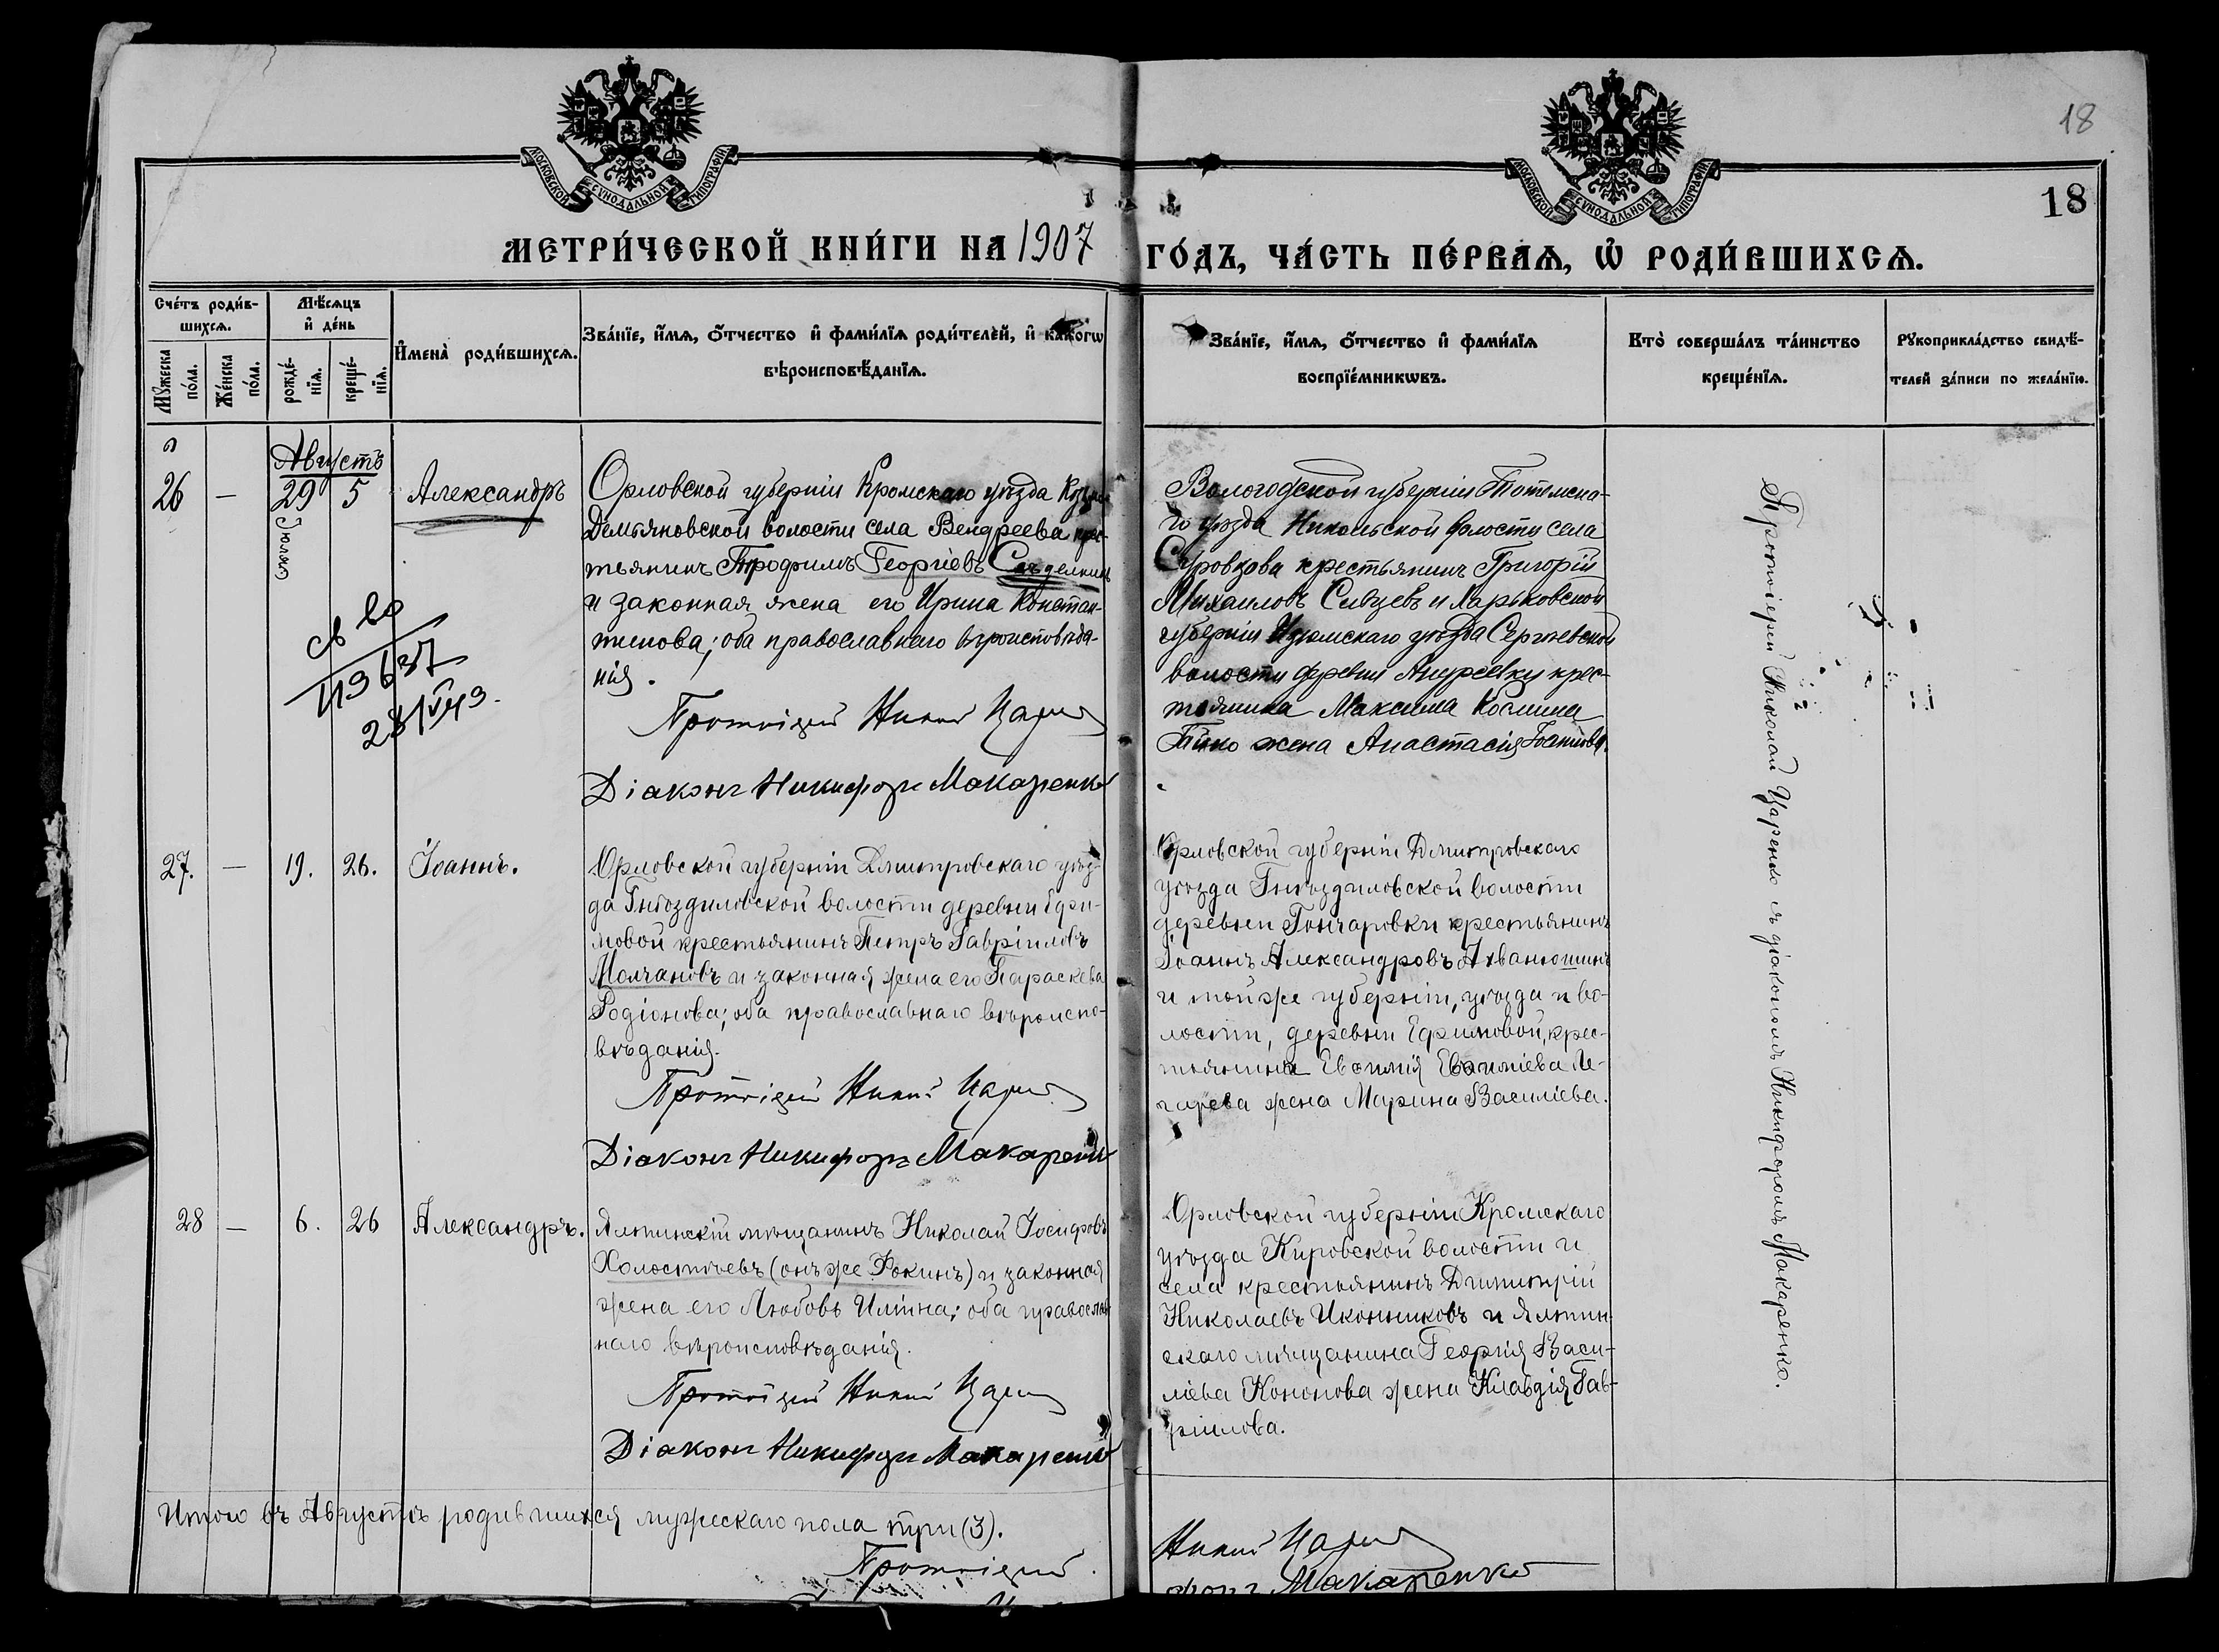 18
18
МОСКОВСКОЙ СУНОДАЛЬНОЙ ТИПОГРАФІИ
МОСКОВСКОЙ СУНОДАЛЬНОЙ ТИПОГРАФІИ
МЕТРИ́ЧЕСКОЙ КНИ́ГИ НА 1907
ГО́ДЪ, ЧА́СТЬ ПЕ́РВАѦ, Ѽ РОДИ́ВШИХСѦ.
Сче́тъ роди́в-
шихсѧ.
Мꙋжеска по́ла.
Же́нска по́ла.
Мѣ́сѧцъ
и҆ де́нь
рожде́-
нїѧ.
креще́-
нїѧ.
И҆мена̀ роди́вшихсѧ.
Зва́нїе, и҆́мѧ, ѻ҆́тчество и҆ фами́лїѧ роди́телѐй, и҆ како́гѡ
вѣроисповѣ́данїѧ.
Зва́нїе, и҆́мѧ, ѻ҆́тчество и҆ фами́лїѧ
воспрїе́мникѡвъ.
Кто̀ соверша́лъ та́инство
креще́нїѧ.
Рꙋкоприкла́дство свидѣ́-
телей за́писи по жела́нїю.
Августъ
26 — 29 5 Александръ
Іюля
св во
113637
28/V 43.
Орловской губерніи Кромскаго уѣзда
Демьяновской волости села Вендреева крес-
тьянинъ Трофимъ Георгіевъ Сѣделкинъ
и законная жена его Ирина Констан-
тинова; оба православнаго вѣроисповѣда-
нія.
Протоіерей Никол Царенко
Діаконъ Никифоръ Макаренко
Вологодской губерніи Тотемска-
го уѣзда Никольской волости села
крестьянинъ Григорій
Михаиловъ и Харьковской
губерніи Изюмскаго уѣзда Сергіевской
волости деревни Андреевки крес-
тьянина Максима Космина
жена Анастасія Іоаннова.
27. — 19. 26. Іоаннъ.
Орловской губерніи Дмитровскаго уѣз-
да Гнѣздиловской волости деревни Ефи-
мовой крестьянинъ Петръ Гавріиловъ
Молчановъ и законная жена его Параскева
Родіонова; оба православнаго вѣроиспо-
вѣданія.
Протоіерей Никол Царенко
Діаконъ Никифоръ Макаренко
Орловской губерніи Дмитровскаго
уѣзда Гнѣздиловской волости
деревни Гончаровки крестьянинъ
Іоаннъ Александровъ Ахванюшинъ
и той же губерніи, уѣзда и во-
лости, деревни Ефимовой, крес-
тьянина Евѳимія Евѳиміева Ле-
гарева жена Марина Василіева.
28 — 6. 26 Александръ.
Ялтинскій мѣщанинъ Николай Іосифовъ
Холостичевъ (онъ же Фокинъ) и законная
жена его Любовь Иліина; оба православ-
наго вѣроисповѣданія.
Протоіерей Никол Царенко
Діаконъ Никифоръ Макаренко
Орловской губерніи Кромскаго
уѣзда Кировской волости и
села крестьянинъ Димитрій
Николаевъ Иконниковъ и Ялтин-
скаго мѣщанина Георгія Васи-
ліева Кононова жена Клавдія Гав-
ріилова.
Протоіерей Николай Царенко съ діакономъ Никифоромъ Макаренко.
Итого въ Августѣ родившихся мужескаго пола три (3).
Протоіерей
Никол Царенко
форъ Макаренко